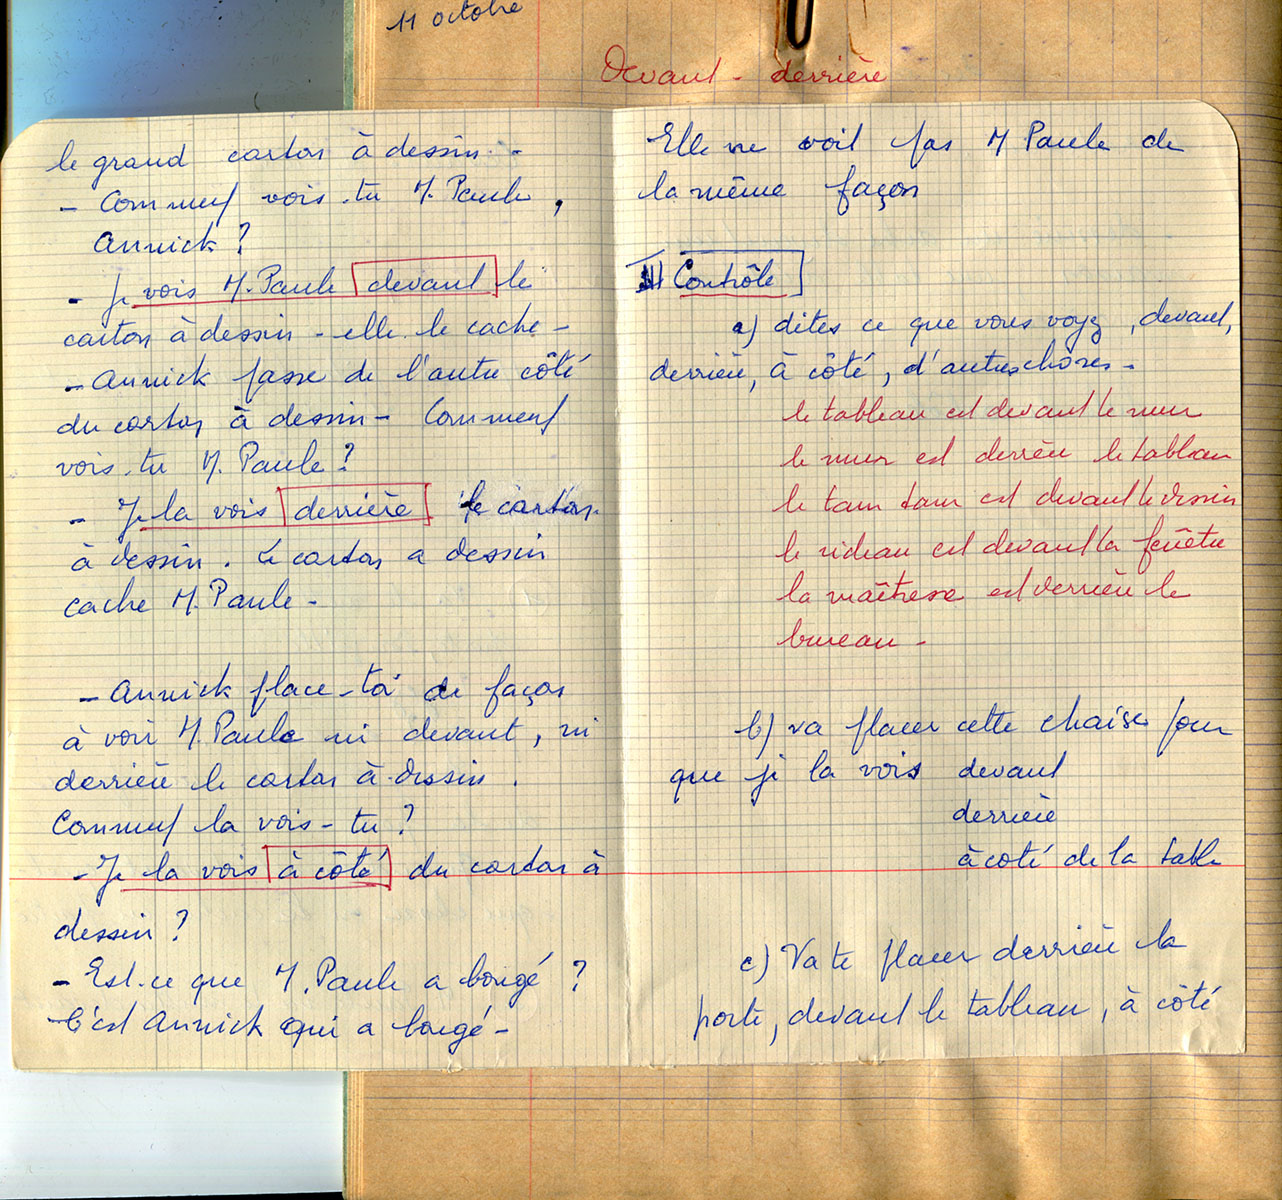 11 octobre
Devant - derrière
le grand carton à dessin. -
- Comment vois-tu M. Paule,
Annick ?
- Je vois M. Paule devant le
carton à dessin - elle le cache -
- Annick passe de l'autre côté
du carton à dessin - Comment
vois-tu M. Paule ?
- Je la vois derrière le carton
à dessin. Le carton a dessin
cache M. Paule -
- Annick place-toi de façon
à voir M. Paule ni devant, ni
derrière le carton à dessin.
Comment la vois-tu ?
- Je la vois à côté du carton à
dessin ?
- Est-ce que M. Paule a bougé ?
- C'est Annick qui a bougé -
Elle ne voit pas M Paule de
la même façon
Contrôle
a) dites ce que vous voyez, devant,
derrière, à côté, d'autres choses -
le tableau est devant le mur
le mur est derrière le tableau
le tam tam est devant le dessin
le rideau est devant la fenêtre
la maîtresse est derrière le
bureau -
b) va placer cette chaise pour
que je la vois devant
derrière
à coté de la table
c) Va te placer derrière la
porte, devant le tableau, à côté